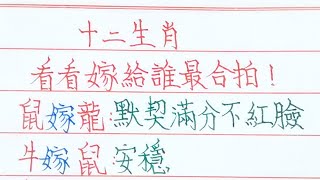 十二生肖
看看嫁給誰最合拍！
鼠嫁龍:默契滿分不紅臉
牛嫁鼠:安穩